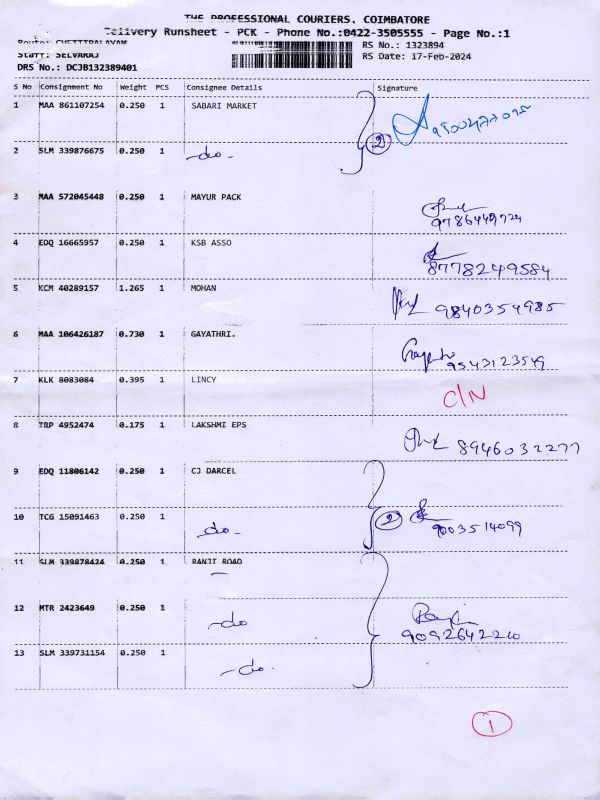 THE PROFESSIONAL COURIERS. COIMBATORE
Delivery Runsheet - PCK - Phone No.:0422-3505555 - Page No.:1
Route: CHETTIPALAYAM RS No.: 1323894
Staff: SELVARAJ RS Date: 17-Feb-2024
DRS No.: DCJB132389401
S No Consignment No Weight PCS Consignee Details Signature
1 MAA 861107254 0.250 1 SABARI MARKET
2 SLM 339876675 0.250 1 -do- 2
3 MAA 572045448 0.250 1 MAYUR PACK
9786449724
4 EDQ 16665957 0.250 1 KSB ASSO
8778249584
5 KCM 40289157 1.265 1 MOHAN 9840354985
6 MAA 106426187 0.730 1 GAYATHRI.
9543123549
7 KLK 8083084 0.395 1 LINCY C/N
8 TRP 4952474 0.175 1 LAKSHMI EPS 8946032277
9 EDQ 11806142 0.250 1 CJ DARCEL
10 TCG 15091463 0.250 1 -do- 2 9003514099
11 SLM 339878424 0.250 1 RANJI ROAD
12 MTR 2423649 0.250 1 -do
9092642210
13 SLM 339731154 0.250 1 -do-
1